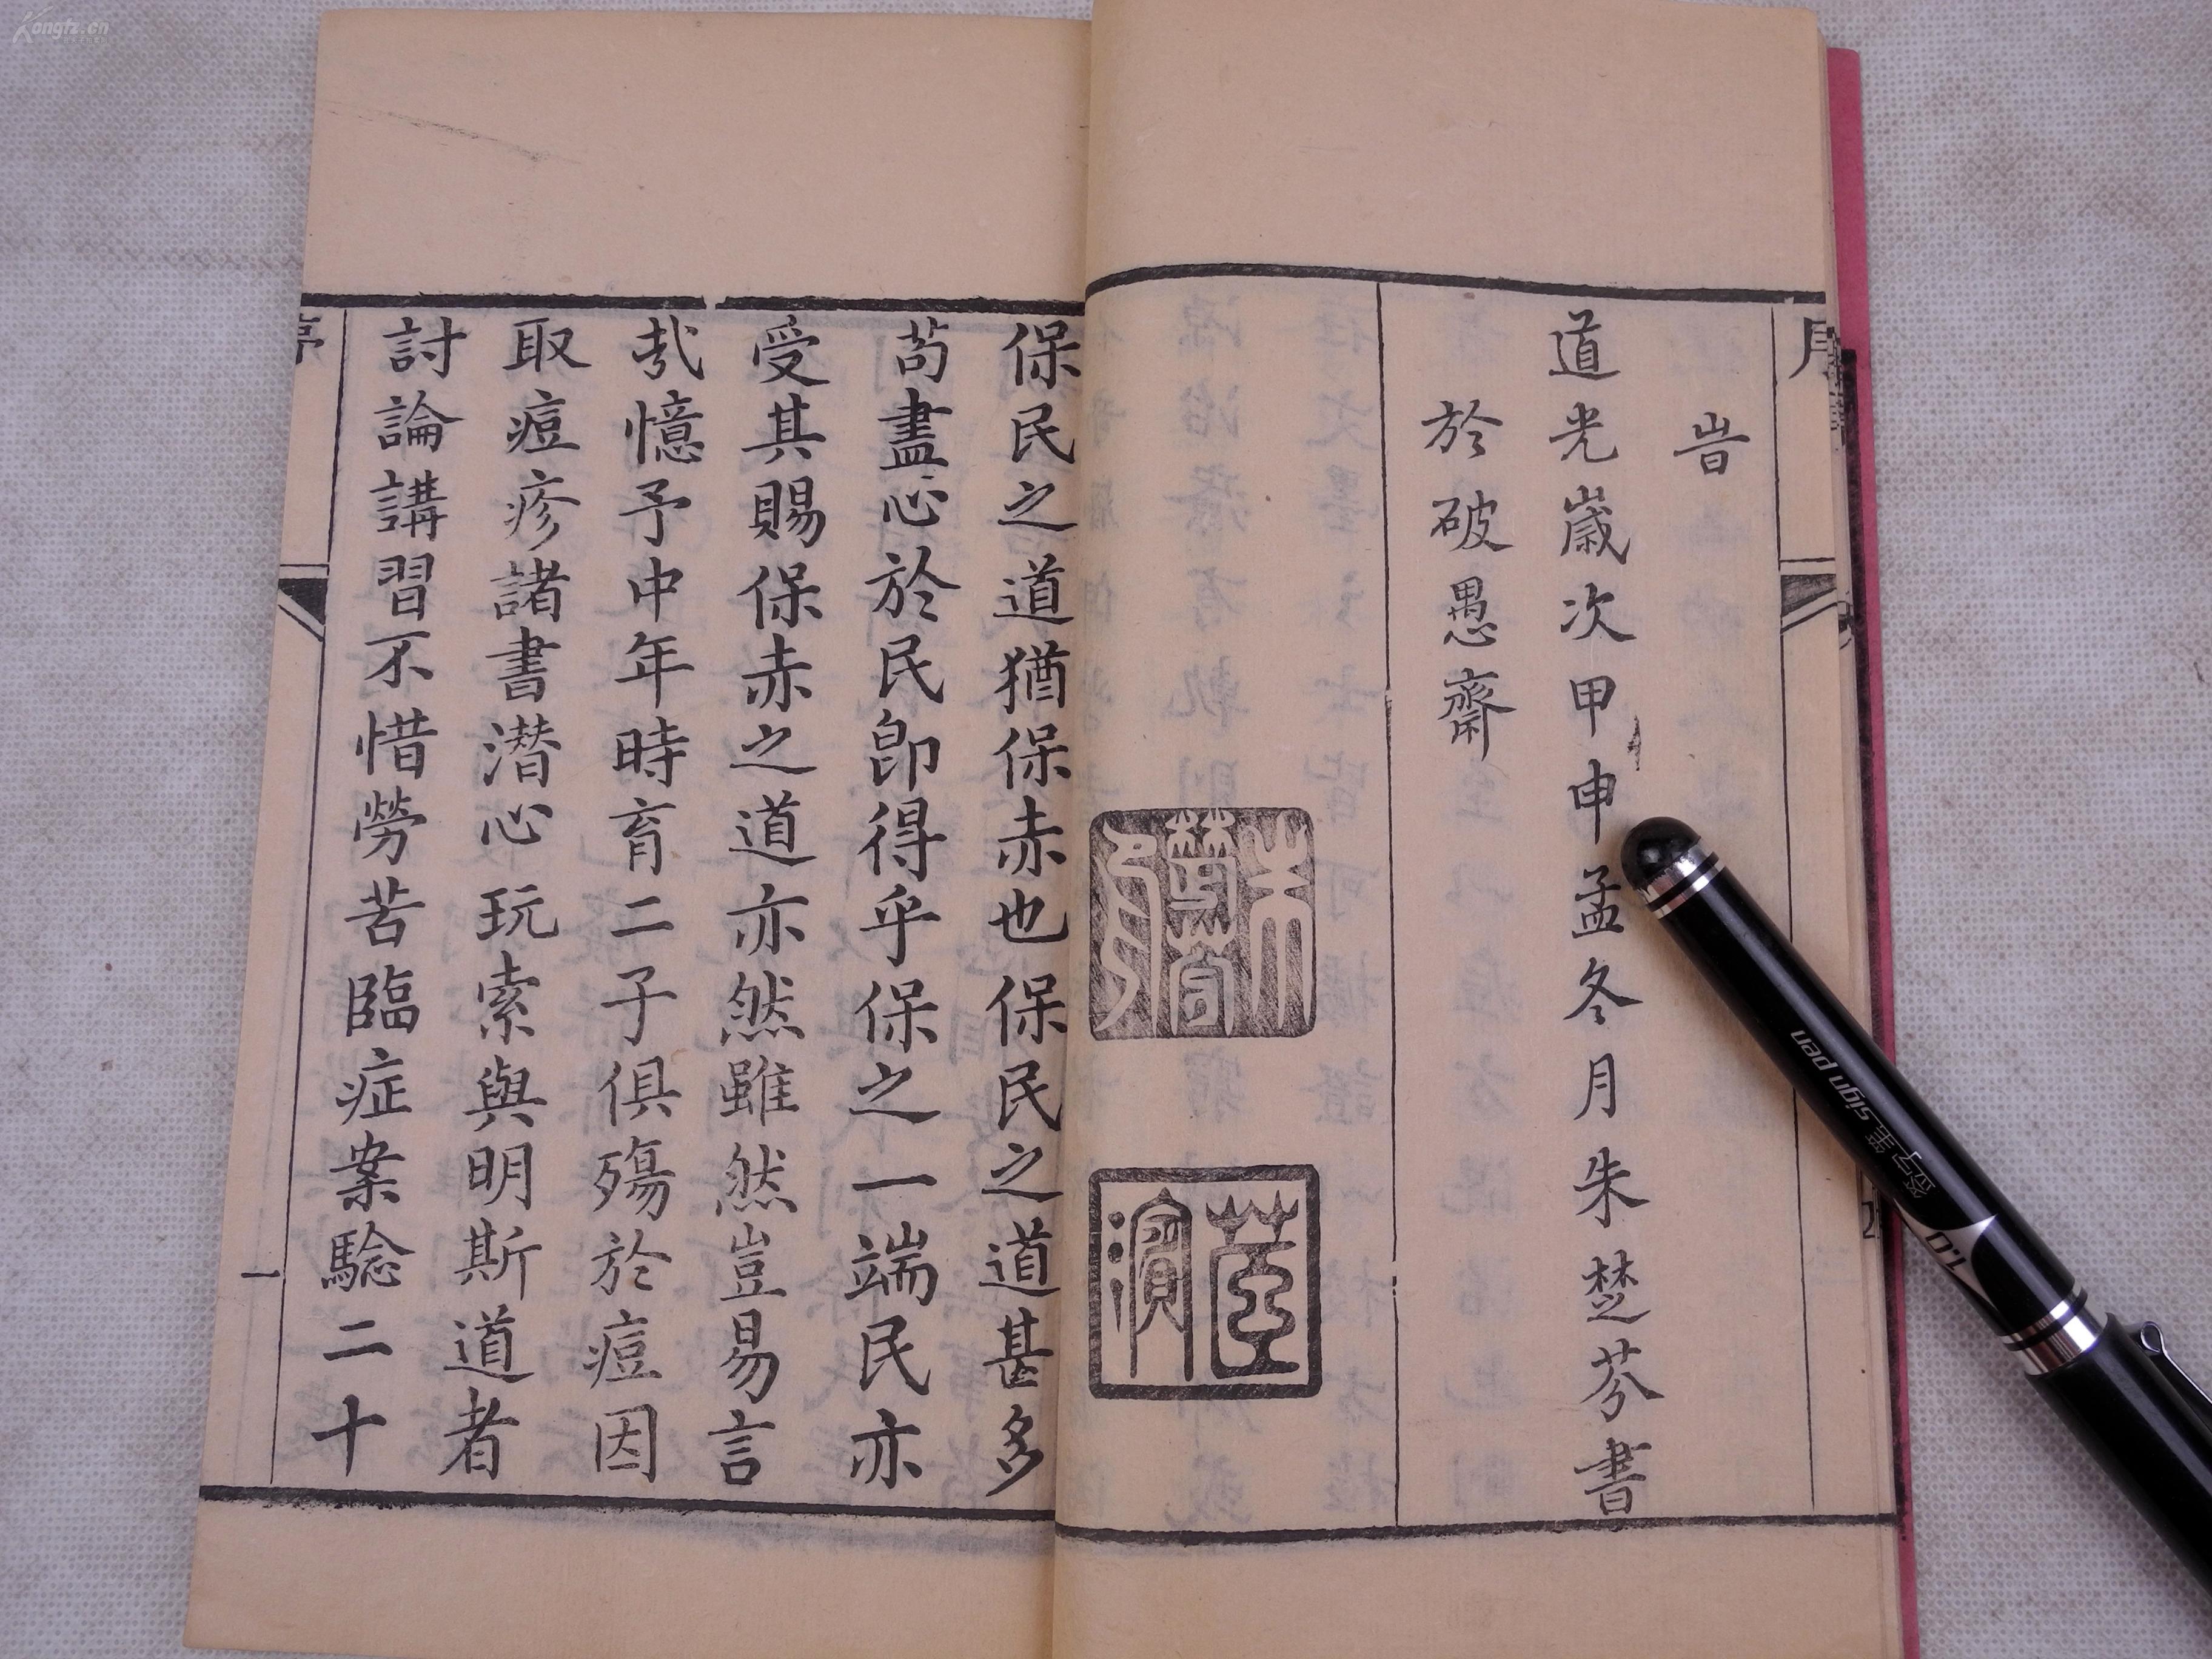 旹
道光歲次甲申孟冬月朱楚芬書
於破愚齋
朱楚芬印
濱
保民之道猶保赤也保民之道甚多
苟盡心於民卽得乎保之一端民亦
受其賜保赤之道亦然雖然豈易言
哉憶予中年時育二子俱殤於痘因
取痘疹諸書潜心玩索與明斯道者
討論講習不惜勞苦臨症案騐二十
序
一
签字笔 sign pen
1.0
Kongfz.cn